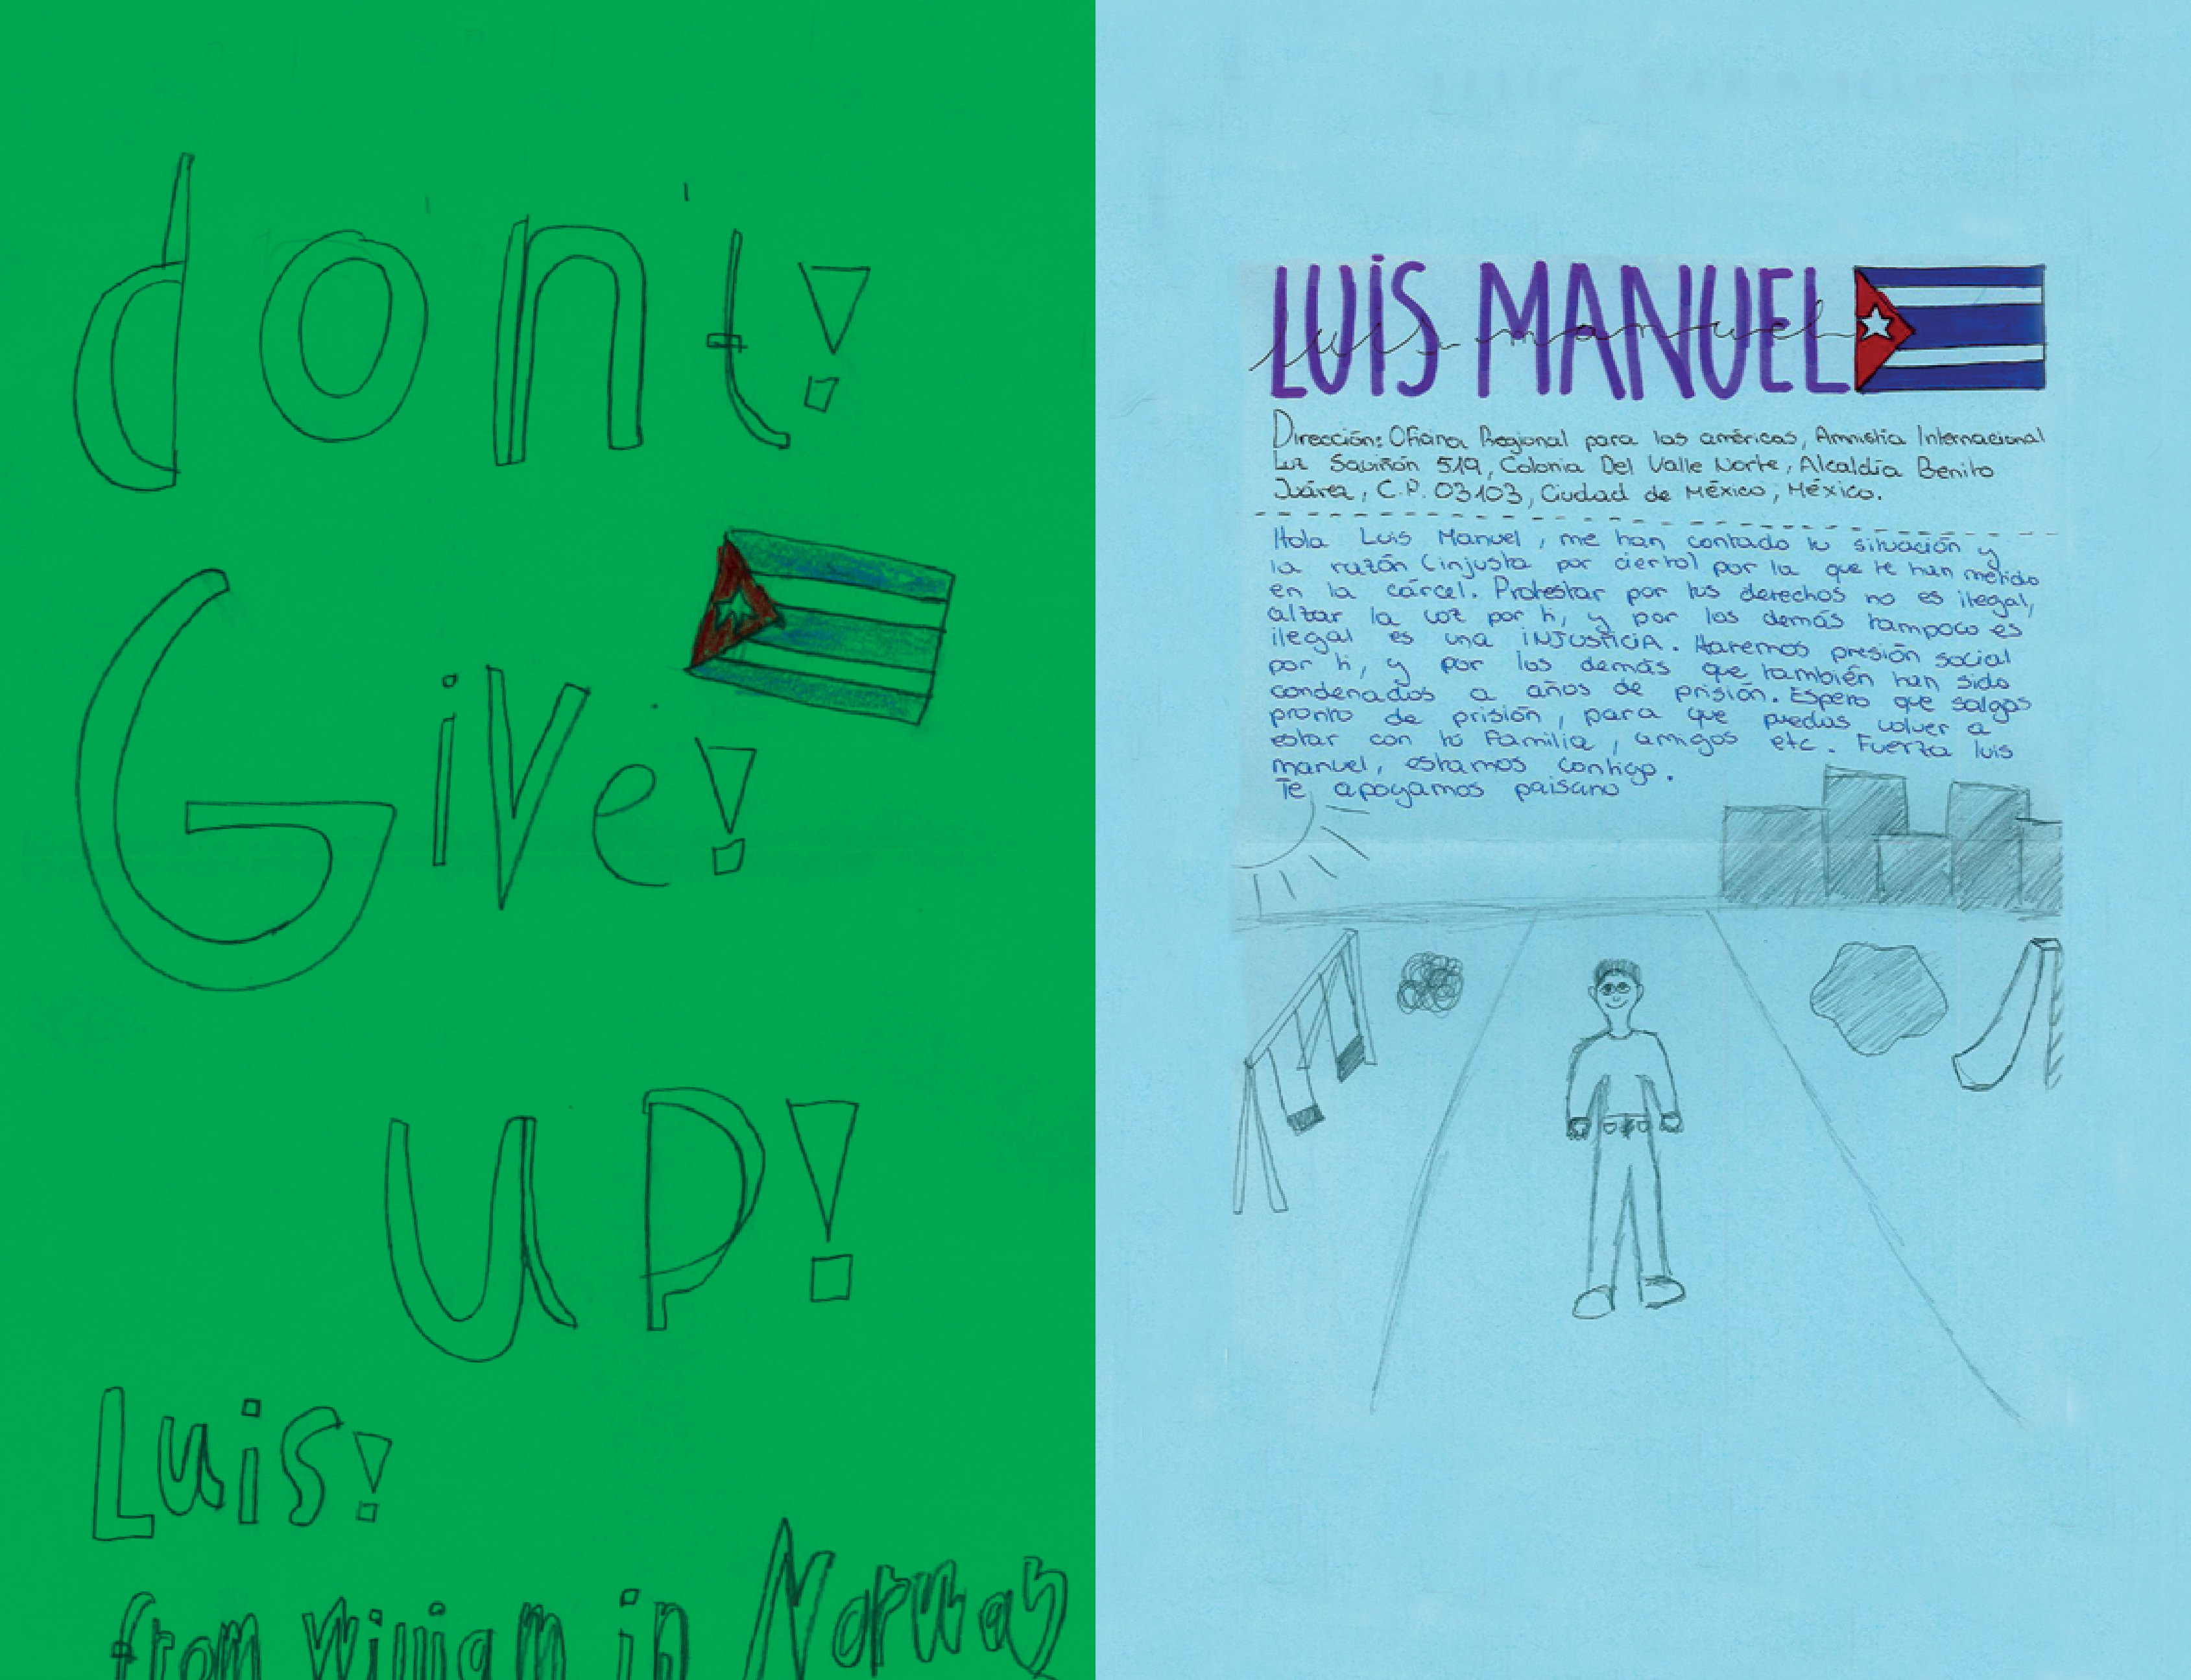 don't!
Give!
up!
Luis!
from William in Norway
LUIS MANUEL
luis manuel
Dirección: Oficina Regional para las américas, Amnistía Internacional
Luz Saviñón 519, Colonia Del Valle Norte, Alcaldía Benito
Juárez, C.P. 03103, Ciudad de México, México.
Hola Luis Manuel, me han contado tu situación y
la razón (injusta por cierto) por la que te han metido
en la cárcel. Protestar por tus derechos no es ilegal,
alzar la voz por ti, y por los demás tampoco es
ilegal es una INJUSTICIA. Haremos presión social
por ti, y por los demás que también han sido
condenados a años de prisión. Espero que salgas
pronto de prisión, para que puedas volver a
estar con tu familia, amigos etc. Fuerza luis
manuel, estamos contigo.
Te apoyamos paisano